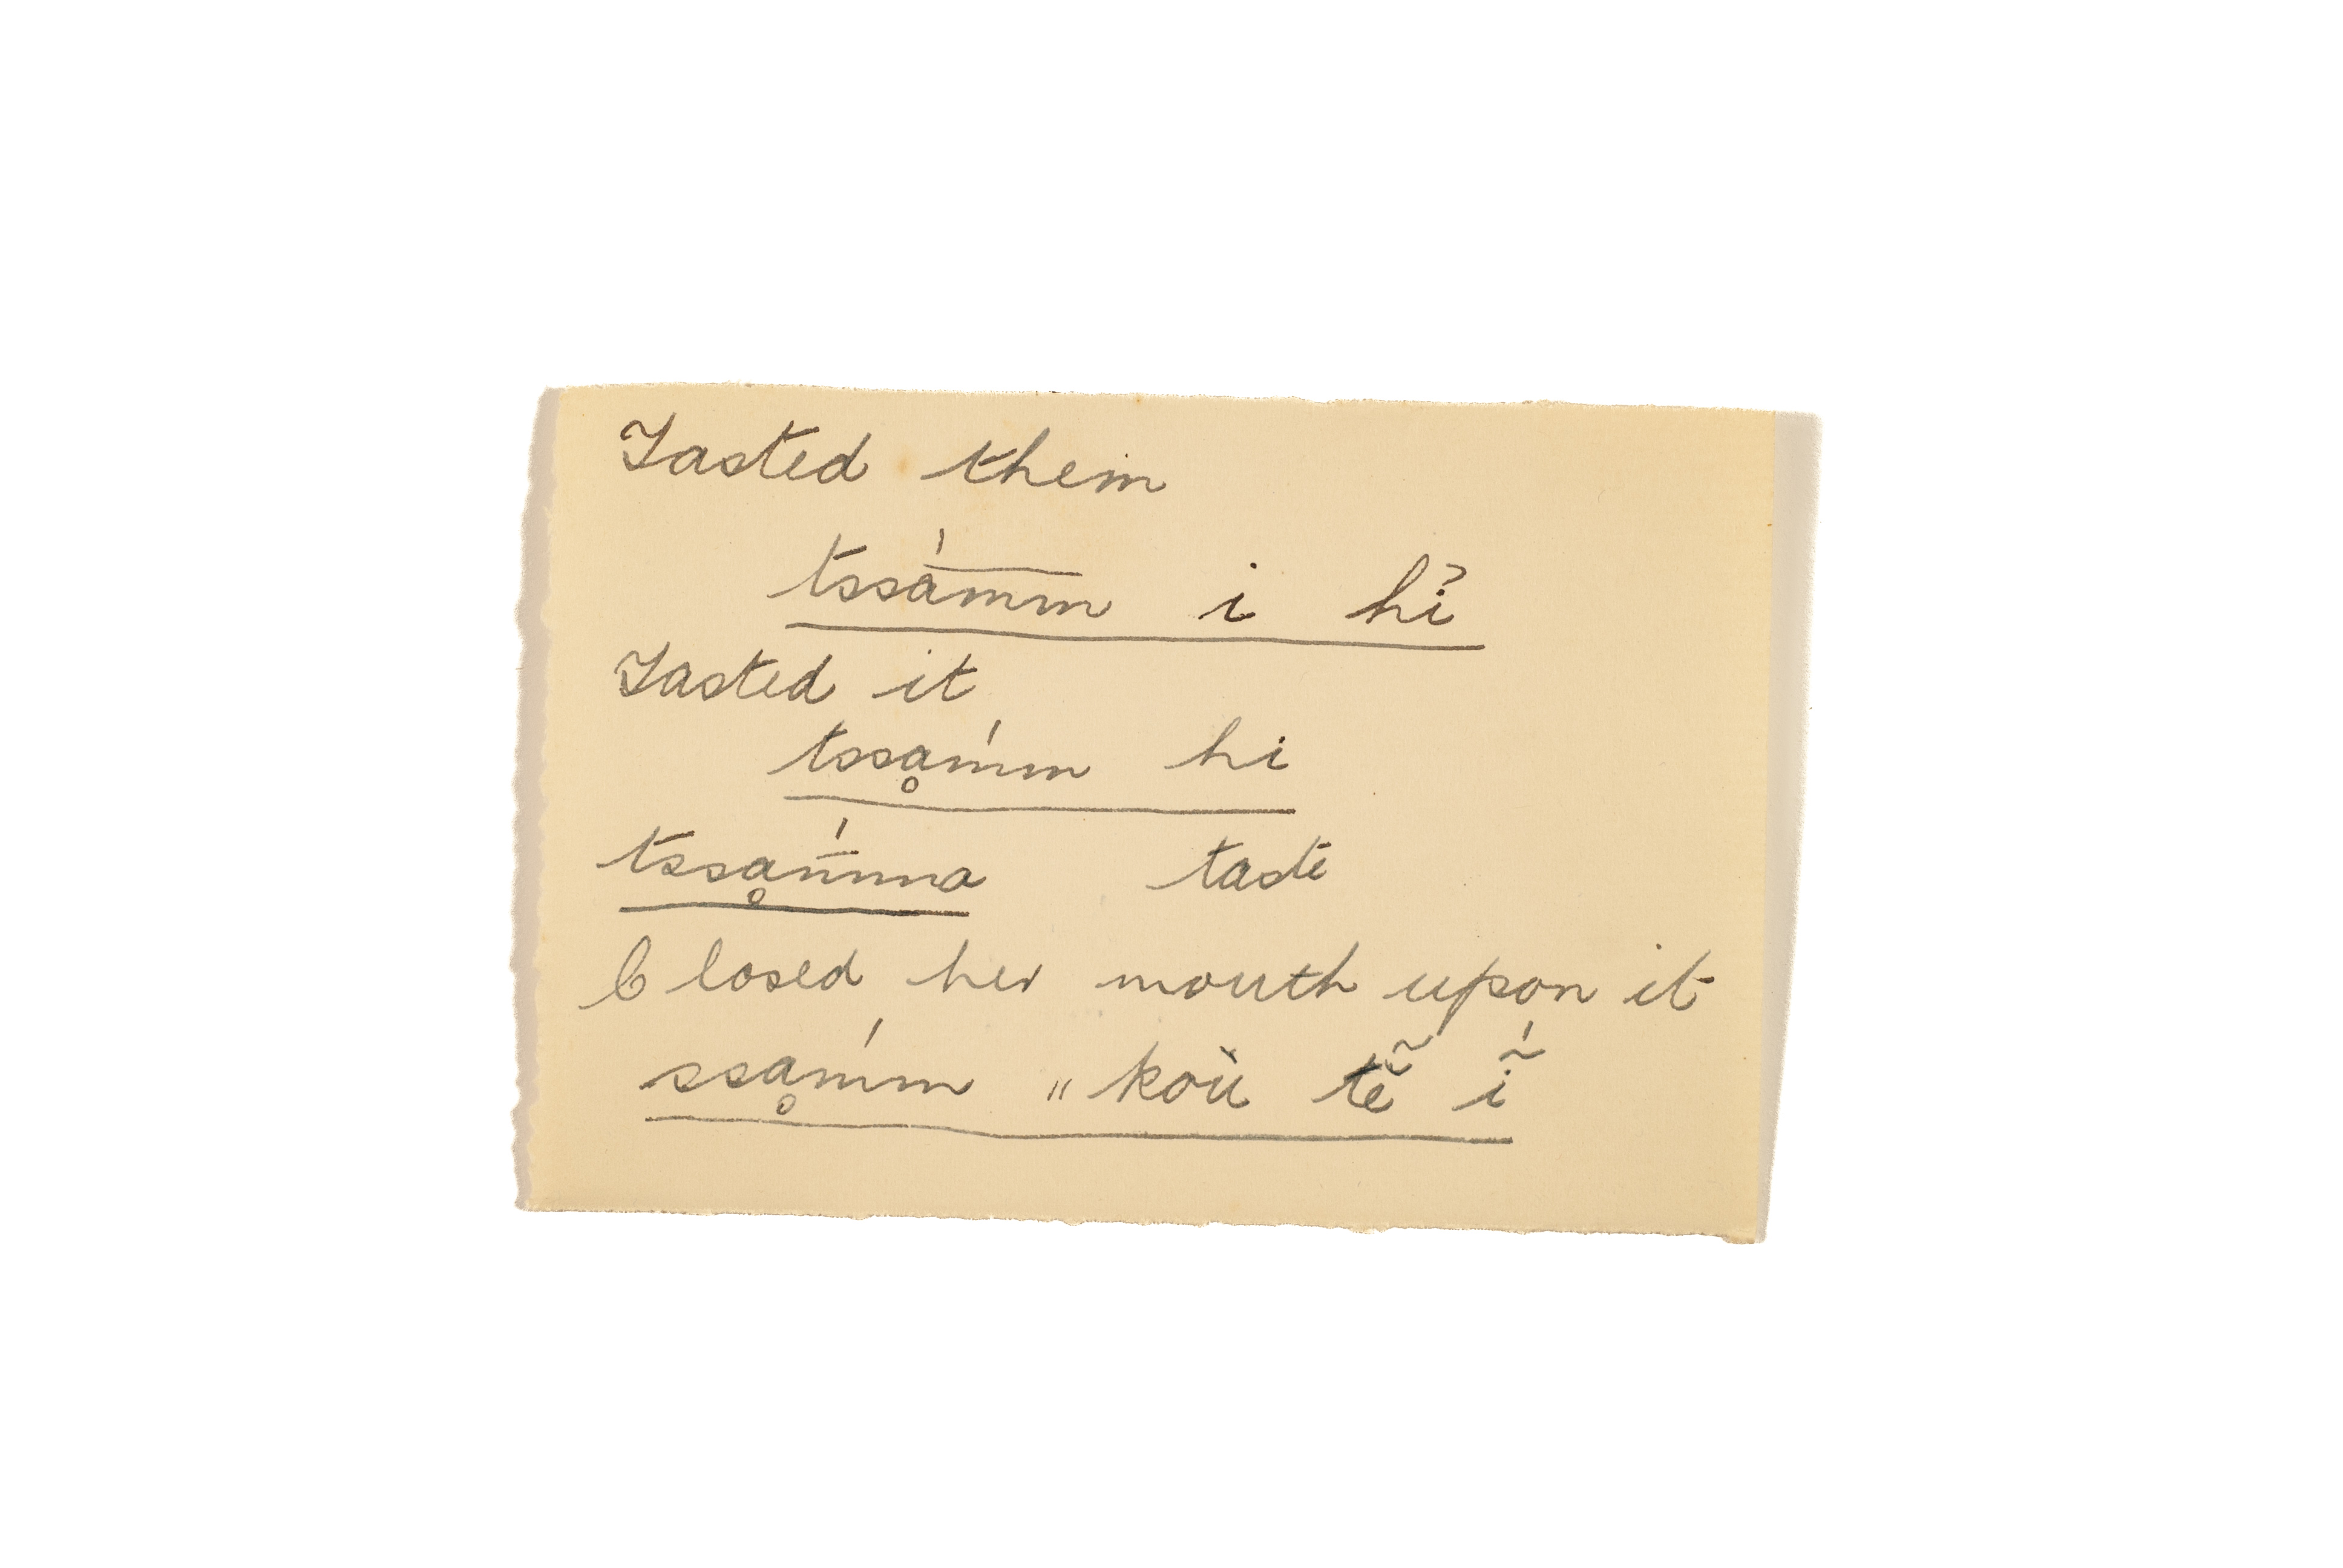 Tasted them
tssá̄mm i hĭ
Tasted it
tssḁḿm hi
tssḁḿ̄ma taste
Closed her mouth upon it
ssḁḿm „ koŭ tĕ̃ ĩ́